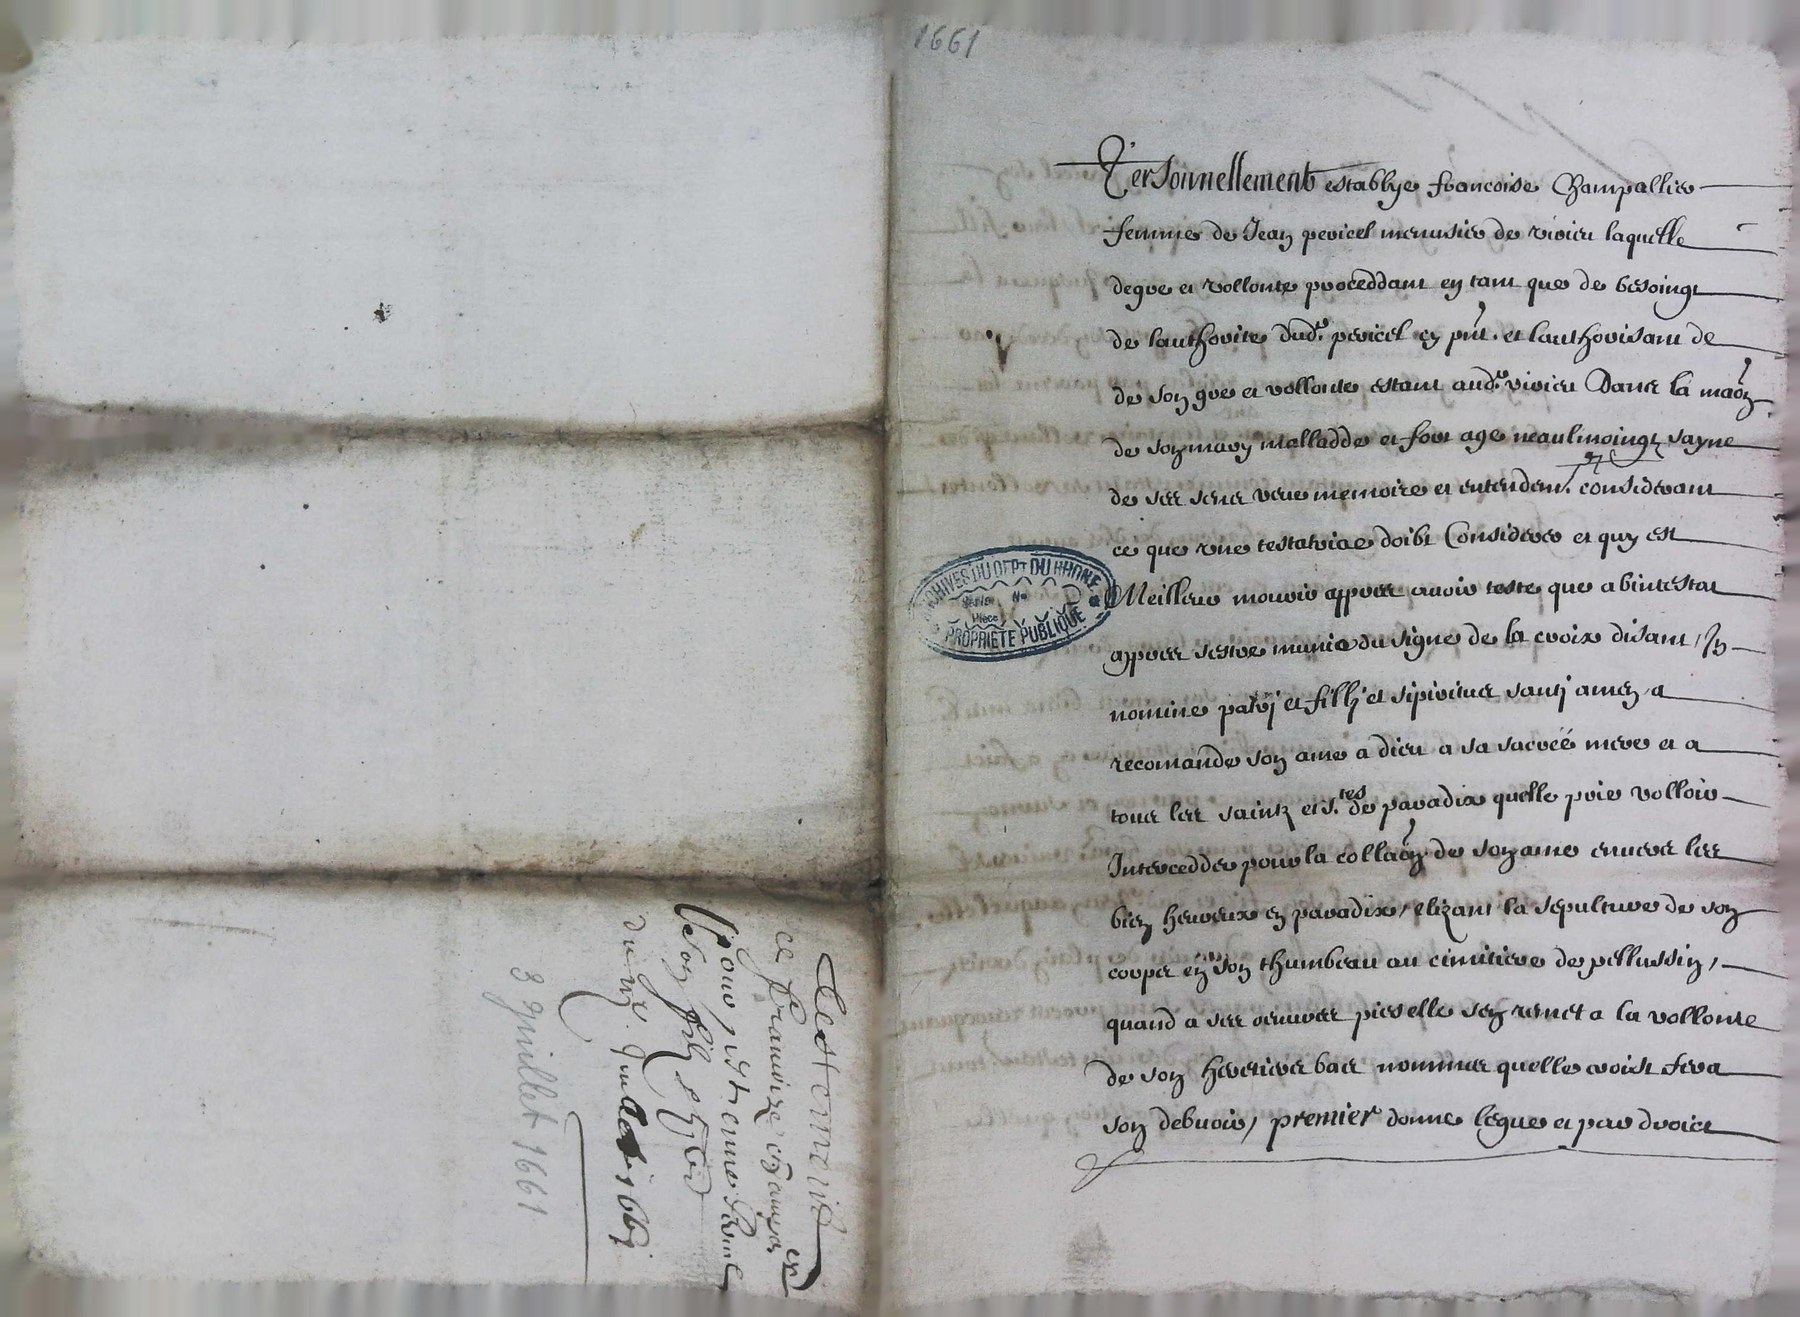 1661
Personnellement establye francoise Champallier
femme de Jean pericel menusier de virieu laquelle
de gre et vollonte proceddant en tant que de besoingt
de lauthorite dud.^t pericel en pnt. et lauthorisant de
de son gre et vollonte estant aud.^t virieu Dans la maon
de son mary malladde et fort age neaulmoingz sayne
de ses sens veue memoire et entendem.^t considerant
ce que une testatrice doibt Considerer et quy est
Meilleur mourir appres avoir teste que abintestat
appres sestre munie du signe de la croix disant / In
nomine patrij et fillj et spiritus santj amen, a
recomande son ame a dieu a sa sacréé mere et a
tous les saintz et s.^tes de paradix quelle prie volloir
Interceddes pour la collaon de son ame envers les
bien heureux en paradix, elizant la sepulture de son
corps en son thumbeau au cimitiere de pellussin,
quand a ses oeuvres pies elle sen remet a la vollonte
de son heretier bas nommer quelle croist fera
son debvoir, premier donne legue et par droict
ARCHIVES DU DEPT DU RHONE
Série No
Pièce
PROPRIETE PUBLIQUE
Testement
de francoize champallier
pour estienne pericel
son filz
du 3 juillet 1661
3 Juillet 1661